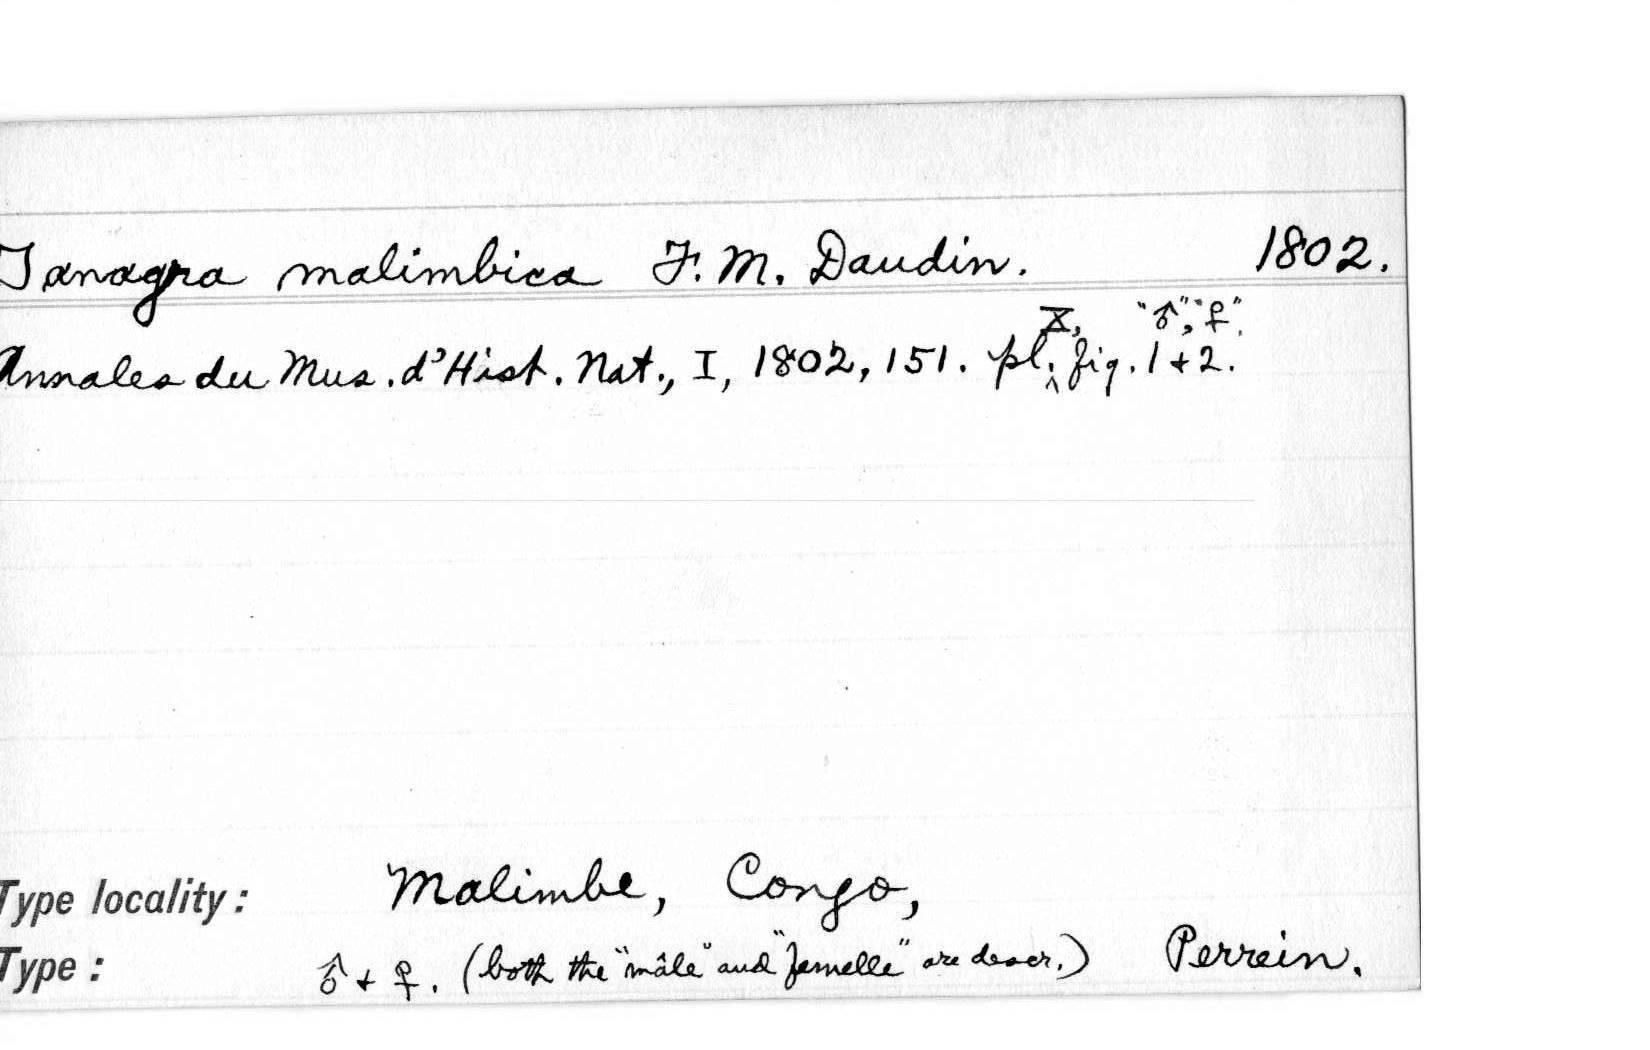 Tanagra malimbica F. M. Daudin. 1802.
Annales du Mus. d'Hist. Nat., I, 1802, 151. pl. X, fig. 1 + 2. "♂", "♀".
Type locality: Malimbe, Congo,
Type: ♂ + ♀. (both the "mâle" and "femelle" are descr.) Perrein.